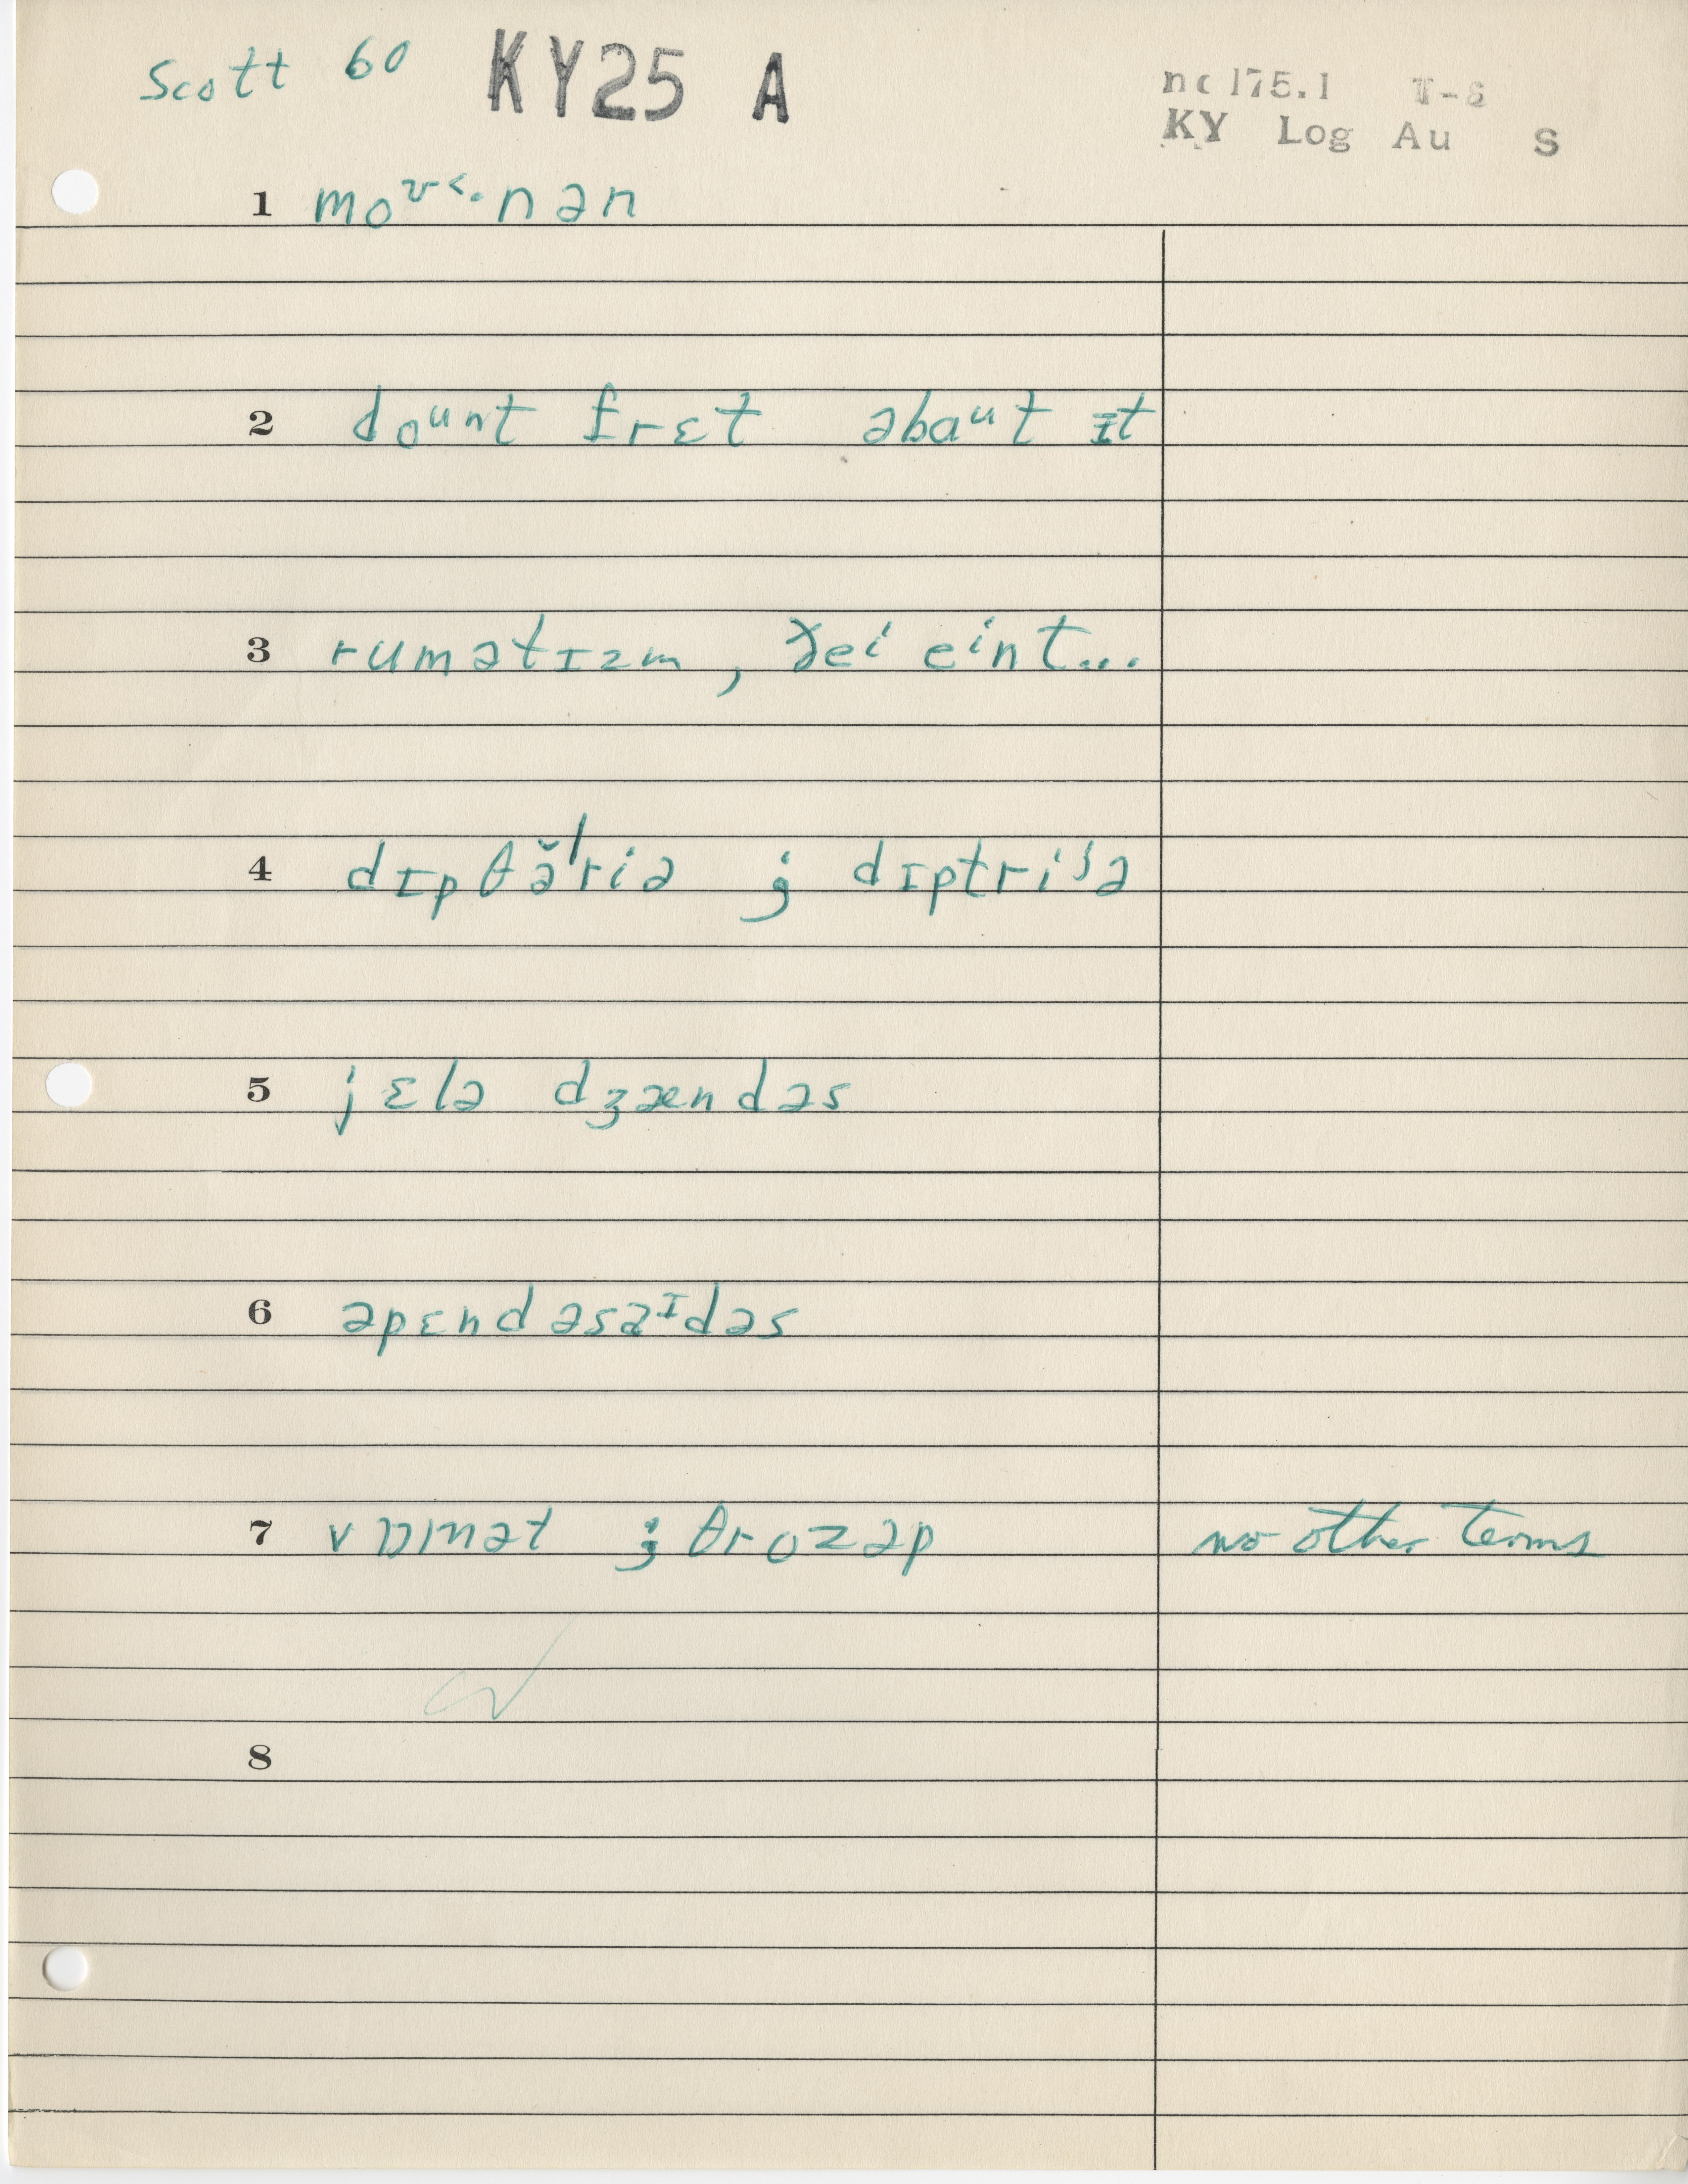 Scott 60 KY25 A
nc 175.1 T-8
KY Log Au S
1 moᶷ˂·nən
2 doᵘnt frɛt əbaᵘt ɪt
3 rumətɪzm, ðeⁱ eⁱnt...
4 dɪpθə̆́riə ; dɪptriʲə
5 jɛlə dʒændəs
6 əpɛndəsaᶦdəs
7 vɒmət ; θrozəp no other terms
8